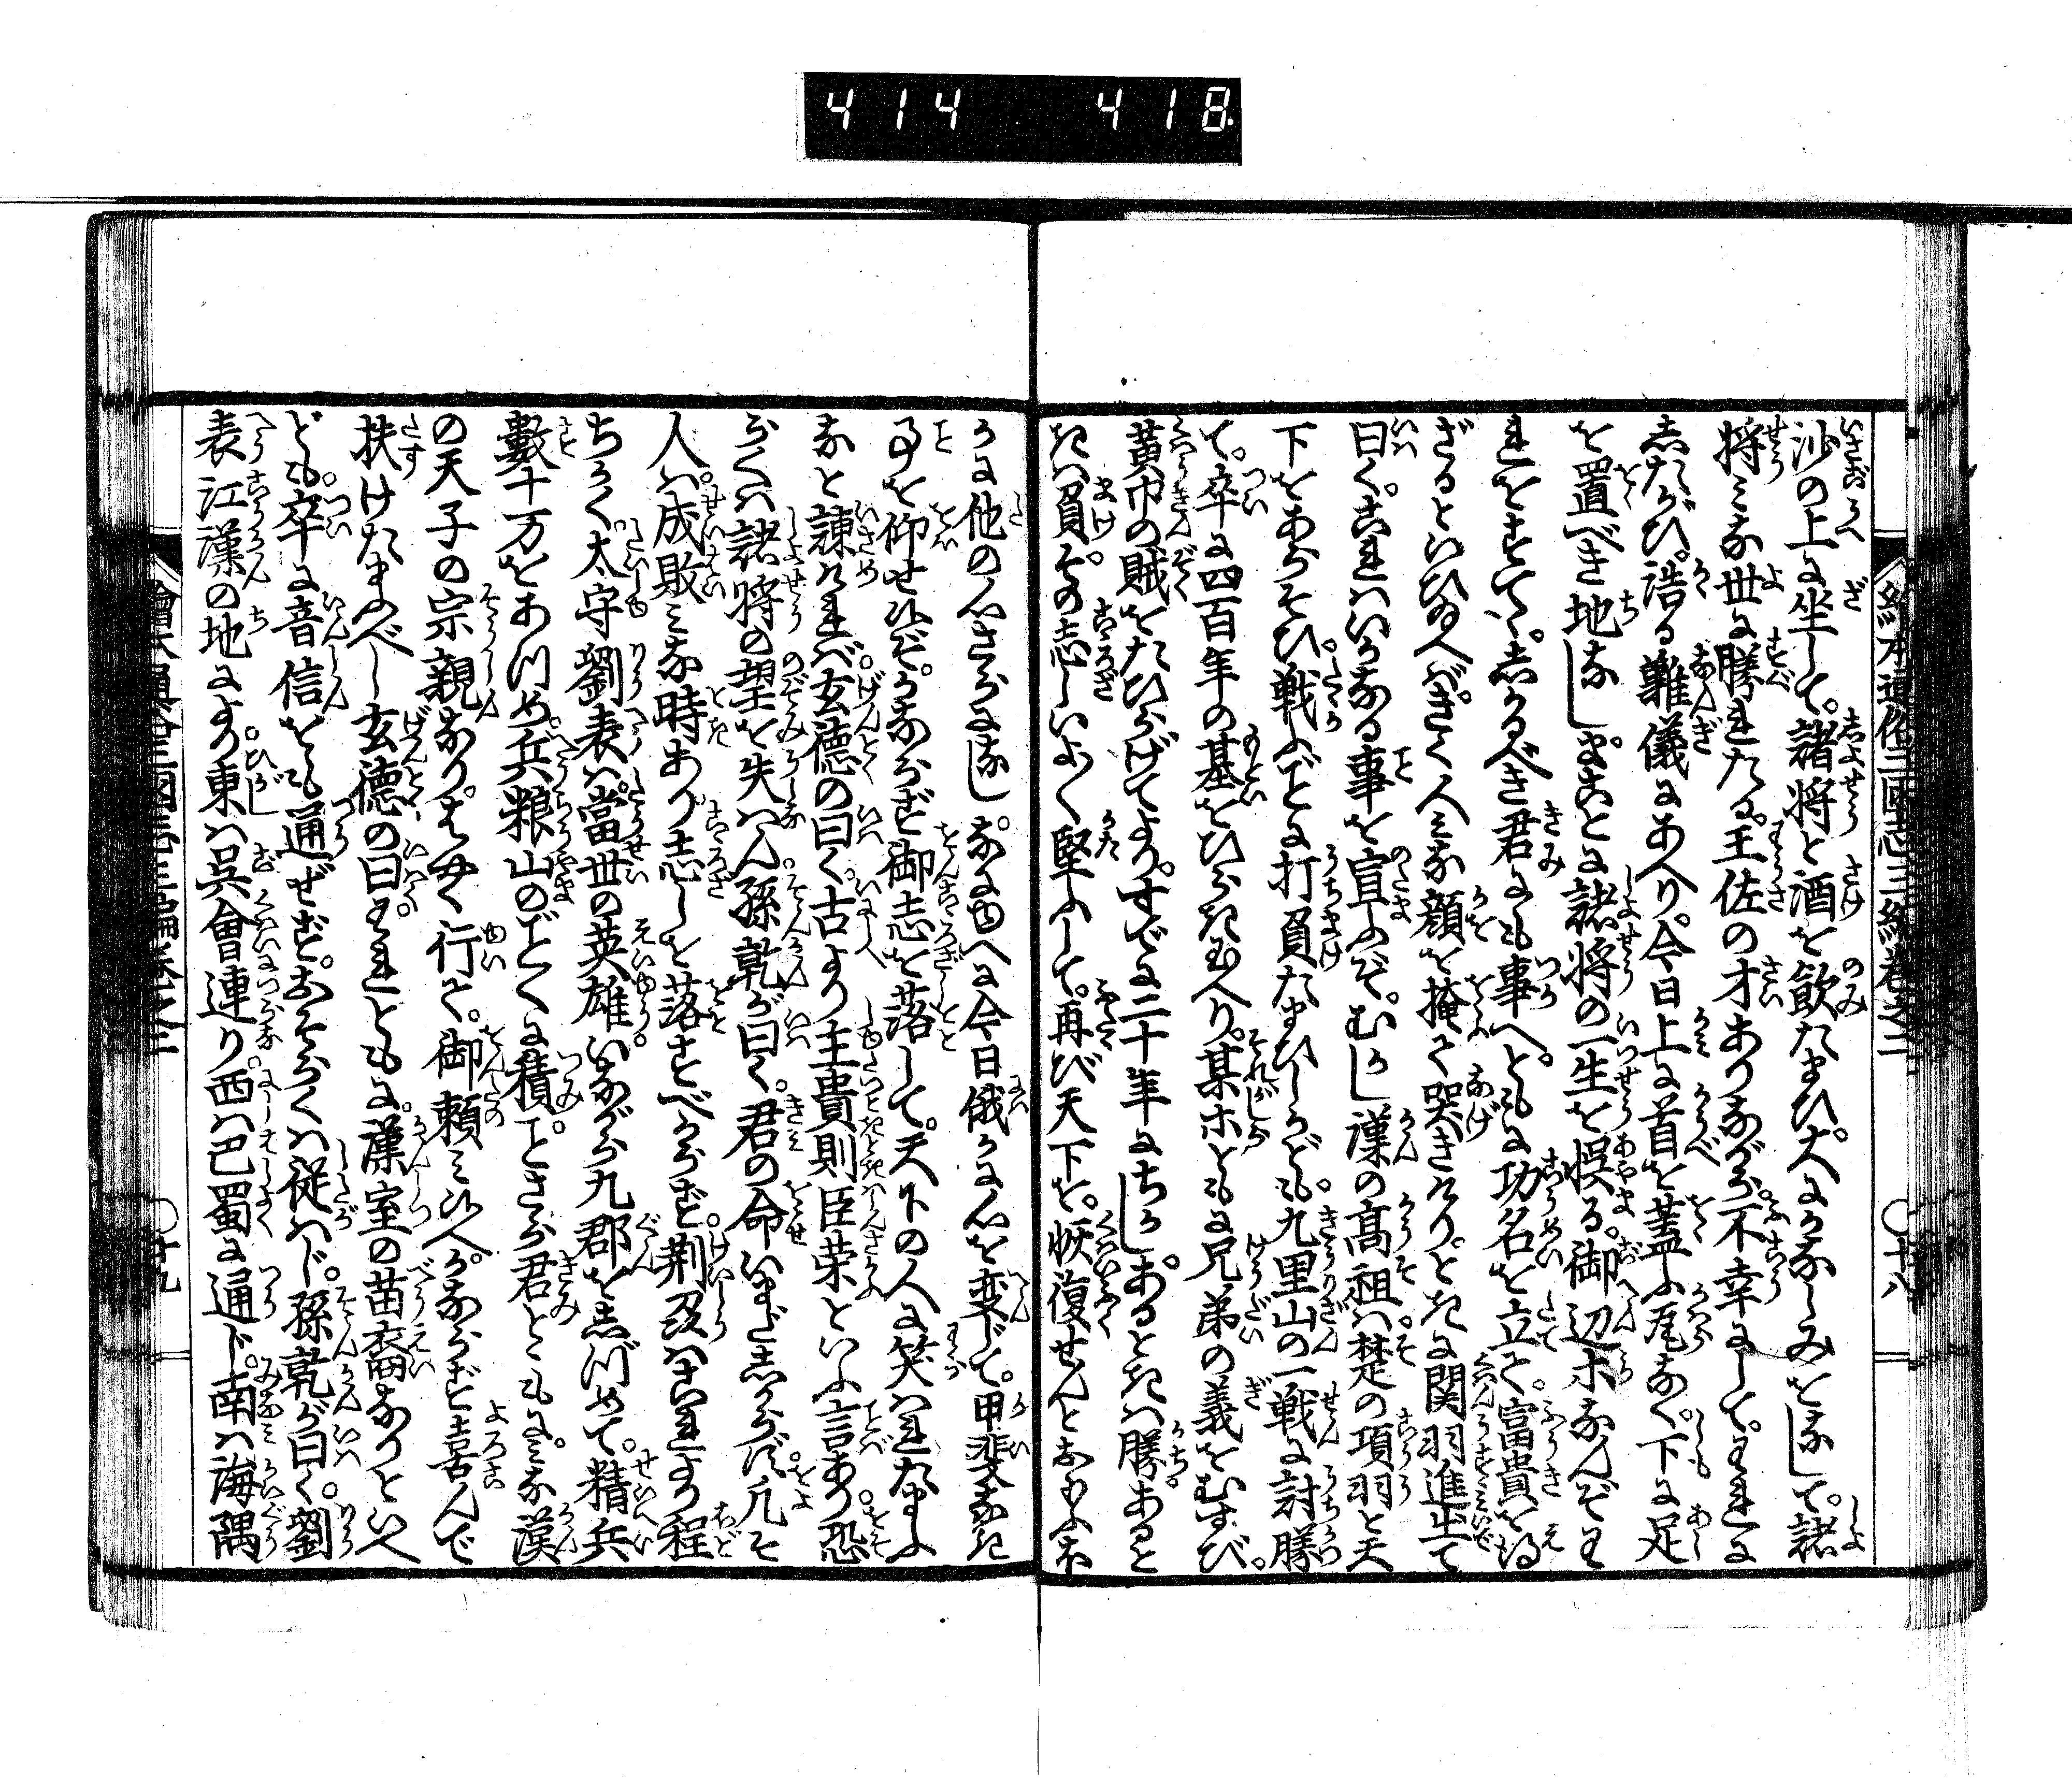 414 418
絵本通俗三國志三編巻之二 ○十八
沙の上に坐して。諸将と酒を飲たまひ。大にかなしみをなして。諸
将みな世に勝れたる。王佐の才ありながら。不幸にして。われに
したがひ。誥る難儀にあへり。今日上に首を蓋ふ瓦なく。下に足
を置べき地なし。まことに諸将の一生を悞る。御辺ホなんぞわ
れをすてゝ。しかるべき君にも事へ。ともに功名を立て。富貴を得
ざるといひ給へば。きく人みな顔を掩て哭きけり。ときに関羽進出て
曰く。これはいかなる事を宣ふぞ。むかし漢の高祖は。楚の項羽と天
下をあらそひ。戦ふごとに打負たまひしかども。九里山の一戦に討勝
て。卒に四百年の基をひらき玉へり。某ホともに兄弟の義をむすび。
黄巾の賊をたひらげてより。すでに二十年にちかし。あるときは勝あると
きは負。その志しいよ〱堅ふして。再び天下を。恢復せんとおもふホ
かに他の心さらになし。なにゆへに今日俄かに心を変じて。甲斐なき
事を仰せ候ぞ。かならず御志を落して。天下の人に笑はれたまふ
なと諫ければ。玄徳の曰く。古より主貴則臣栄といふ言あり。恐
らくは諸将の望を失はん。孫乾が曰く。君の命いまだ志からず。凡そ
人は。成敗みな時あり。志しを落すべからず。荊州はこれより程
ちかく。太守劉表は。當世の英雄。いながら九郡をしづめて。精兵
數十万をあつめ。兵粮山のごとくに積。ことさら君とともに。みな漢
の天子の宗親なり。はやく行て。御頼み候へ。かならず喜んで
扶けたまのべし。玄徳の曰。われともに。漢室の苗裔なりといへ
ども。卒に音信をも通ぜず。おそらくは従はじ。孫乾が曰く。劉
表江漢の地により。東は呉會連り。西は巴蜀に通ド。南は海隅